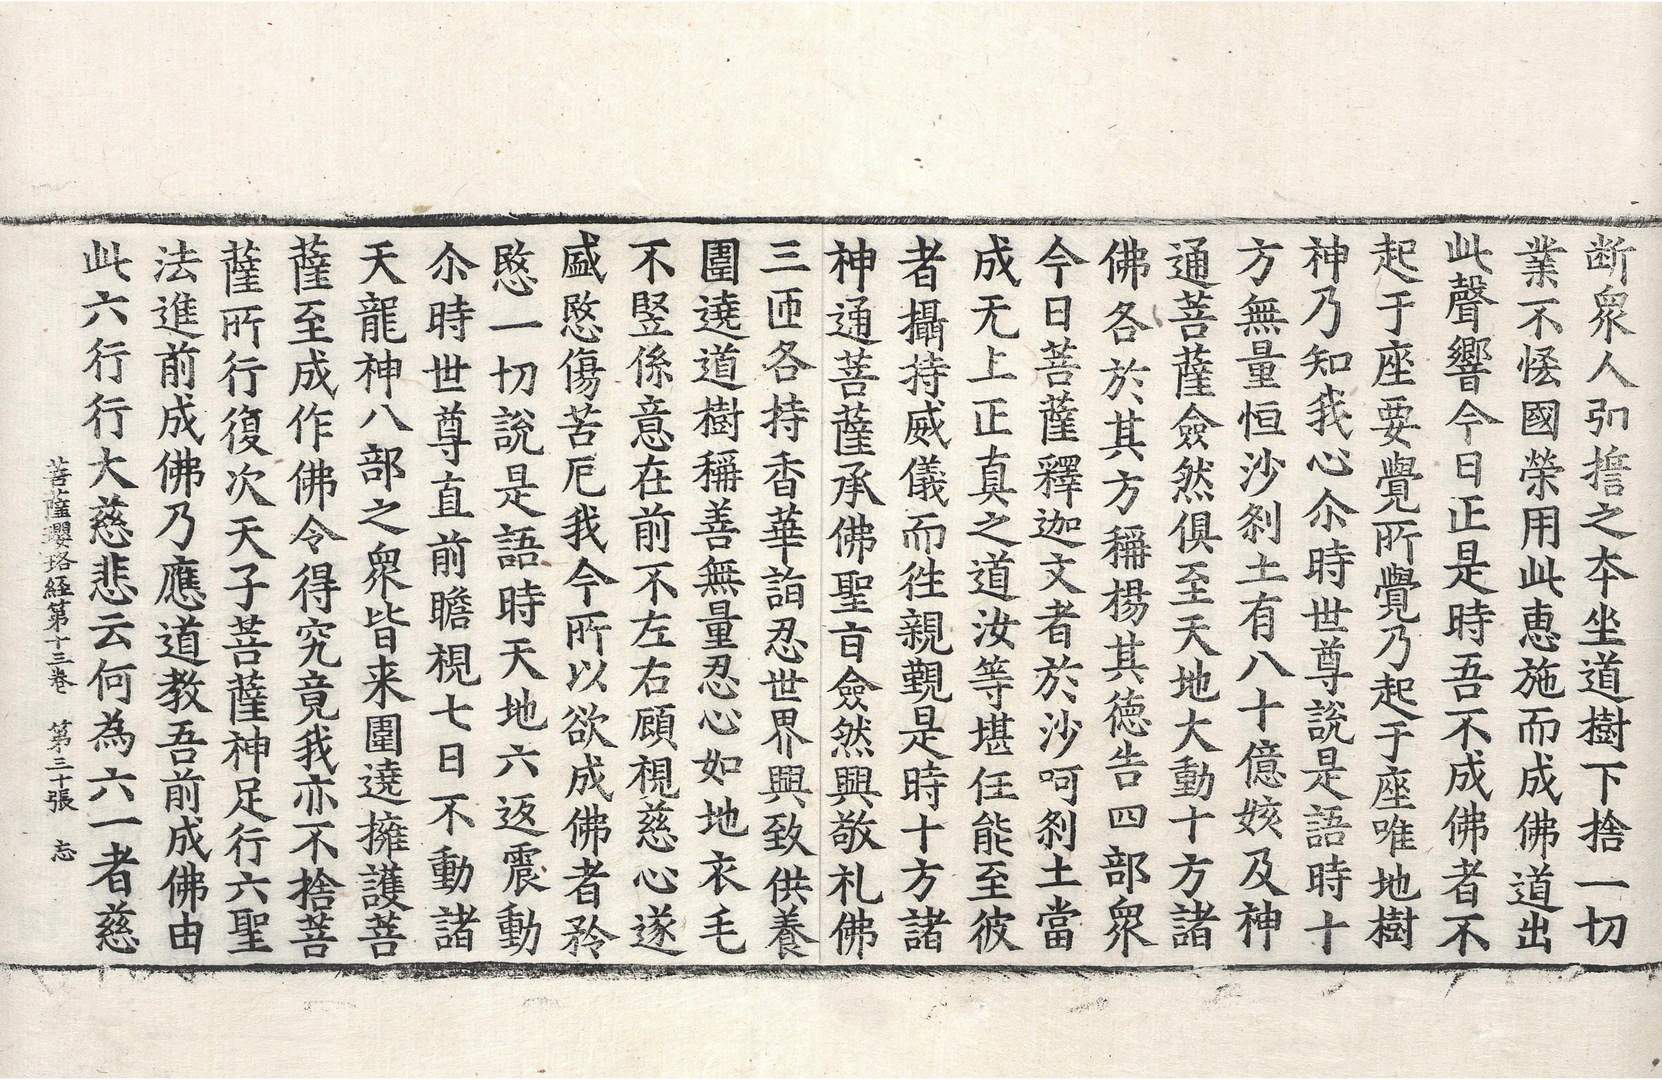 断衆人㧈擔之本坐道樹下捨一切
業不恡國榮用此惠施而成佛道出
此聲響今日正是時吾不成佛者不
起于座要覺所覺乃起于座唯地樹
神乃知我心尒時世尊說是語時十
方無量恒沙刹土有八十億姟及神
通菩薩僉然俱至天地大動十方諸
佛各於其方稱楊其德告四部衆
今日菩薩釋迦文者於沙呵刹土當
成无上正真之道汝等堪任能至彼
者攝持威儀而徃親覲是時十方諸
神通菩薩承佛聖旨僉然興敬礼佛
三匝各持香華詣忍世界興致供養
圍遶道樹稱善無量忍心如地衣毛
不竪係意在前不左右顧視慈心遂
盛愍傷苦厄我今所以欲成佛者矜
愍一切說是語時天地六返震動
尒時世尊直前瞻視七日不動諸
天龍神八部之衆皆来圍遶擁護菩
薩至成作佛令得究竟我亦不捨菩
薩所行復次天子菩薩神足行六聖
法進前成佛乃應道教吾前成佛由
此六行行大慈悲云何為六一者慈
菩薩瓔珞經第十三卷　第三十張　忘